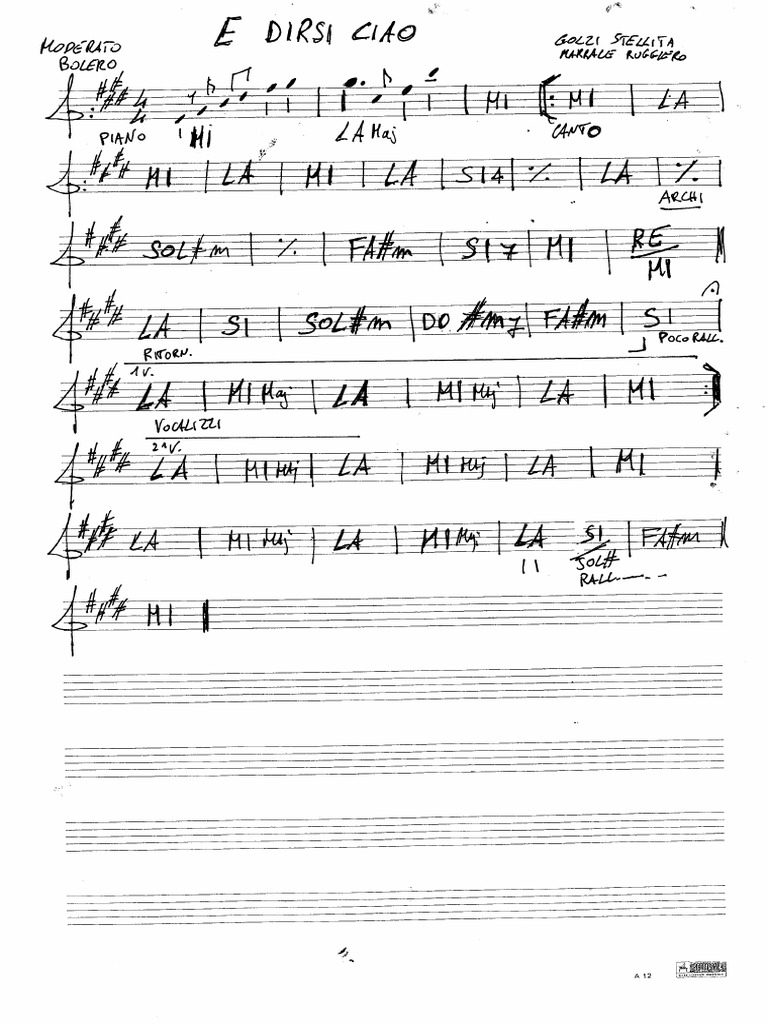 E DIRSI CIAO
MODERATO
BOLERO
GOLZI STELLITA
MARRALE RUGGIERO
4
4
MI | MI | LA
PIANO MI LA Maj CANTO
MI | LA | MI | LA | SI4 | ٪ | LA | ٪
ARCHI
SOL#m | ٪ | FA#m | SI7 | MI | RE/MI
LA | SI | SOL#m | DO#m7 | FA#m | SI
RITORN. POCO RALL.
1V.
LA | MI Maj | LA | MI Maj | LA | MI
VOCALIZZI
2V.
LA | MI Maj | LA | MI Maj | LA | MI
LA | MI Maj | LA | MI Maj | LA SI/SOL# | FA#m
RALL------
MI
A 12